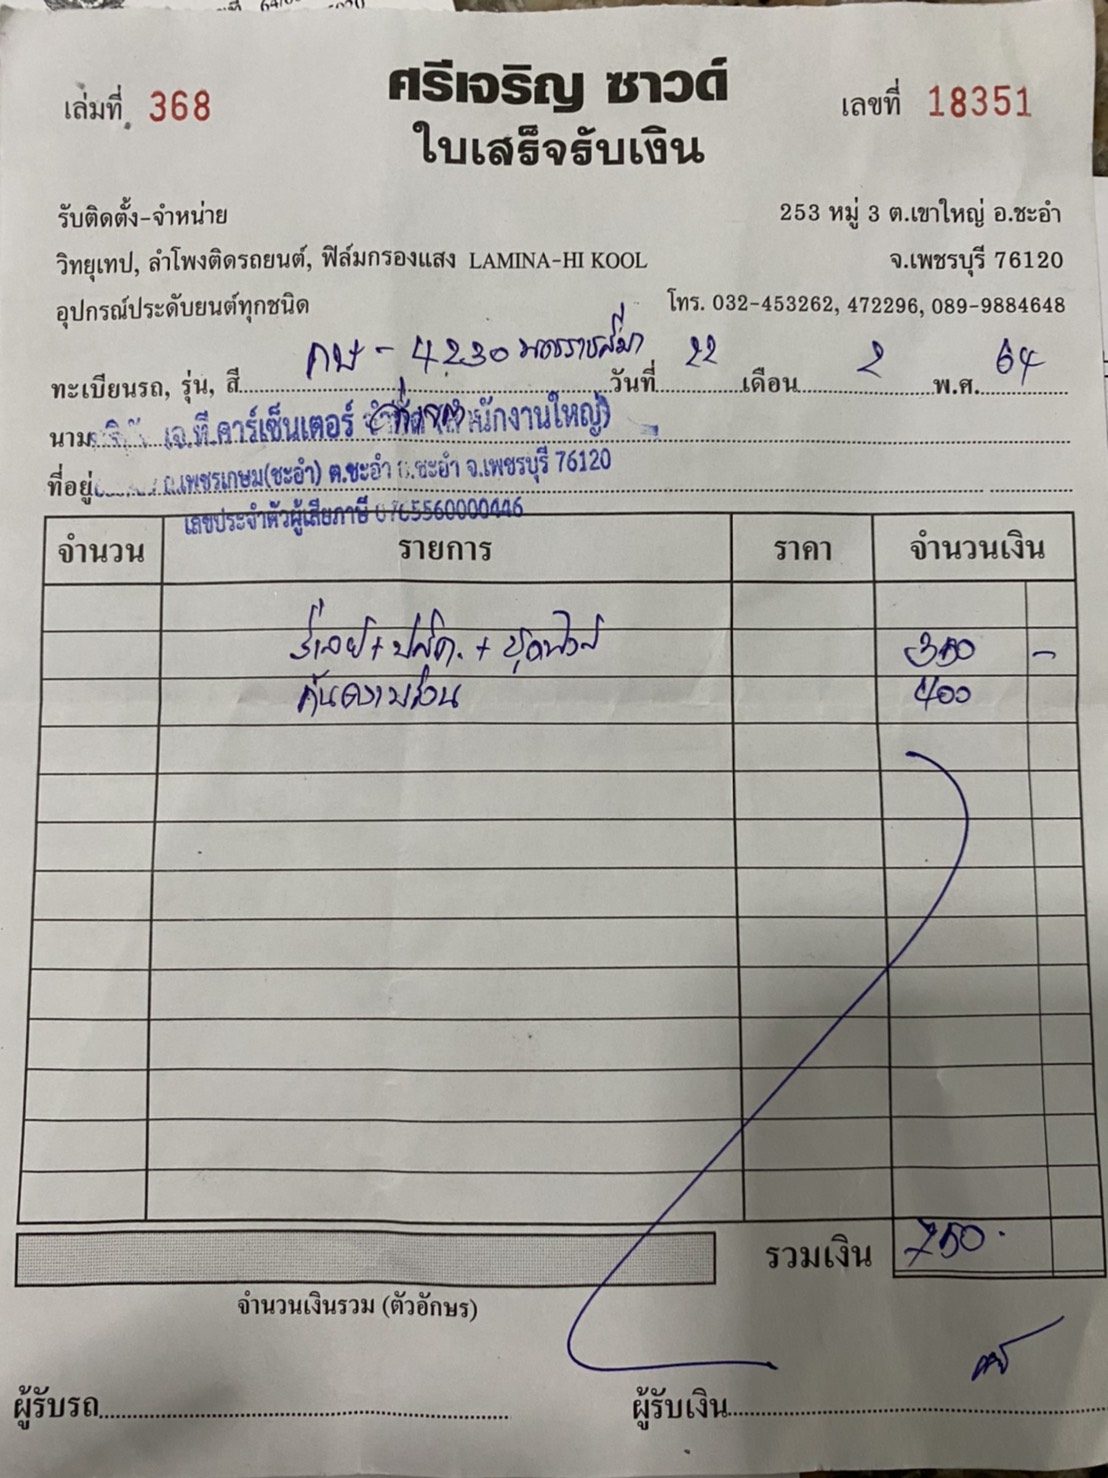 ศรีเจริญ ซาวด์
เล่มที่ 368
เลขที่ 18351
ใบเสร็จรับเงิน
รับติดตั้ง-จำหน่าย
253 หมู่ 3 ต.เขาใหญ่ อ.ชะอำ
วิทยุเทป, ลำโพงติดรถยนต์, ฟิล์มกรองแสง LAMINA-HI KOOL
จ.เพชรบุรี 76120
อุปกรณ์ประดับยนต์ทุกชนิด
โทร. 032-453262, 472296, 089-9884648
ทะเบียนรถ, รุ่น, สี กษ - 4230 นครราชสีมา วันที่ 22 เดือน 2 พ.ศ. 64
นาม เจ.ที.คาร์เซ็นเตอร์ จำกัด (สำนักงานใหญ่)
ที่อยู่ ถ.เพชรเกษม(ชะอำ) ต.ชะอำ อ.ชะอำ จ.เพชรบุรี 76120
เลขประจำตัวผู้เสียภาษี 0765560000446
จำนวน รายการ ราคา จำนวนเงิน
350 -
400
รวมเงิน 750.
จำนวนเงินรวม (ตัวอักษร)
ผู้รับรถ
ผู้รับเงิน